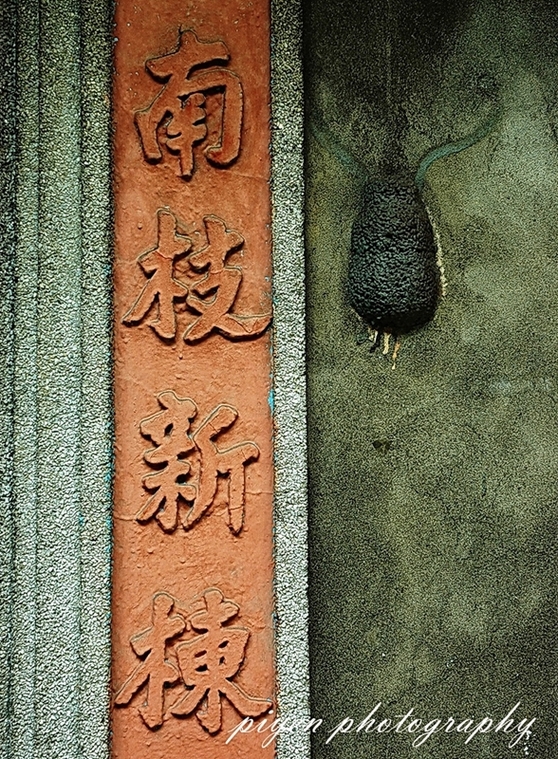 南枝新棟
pigon photography